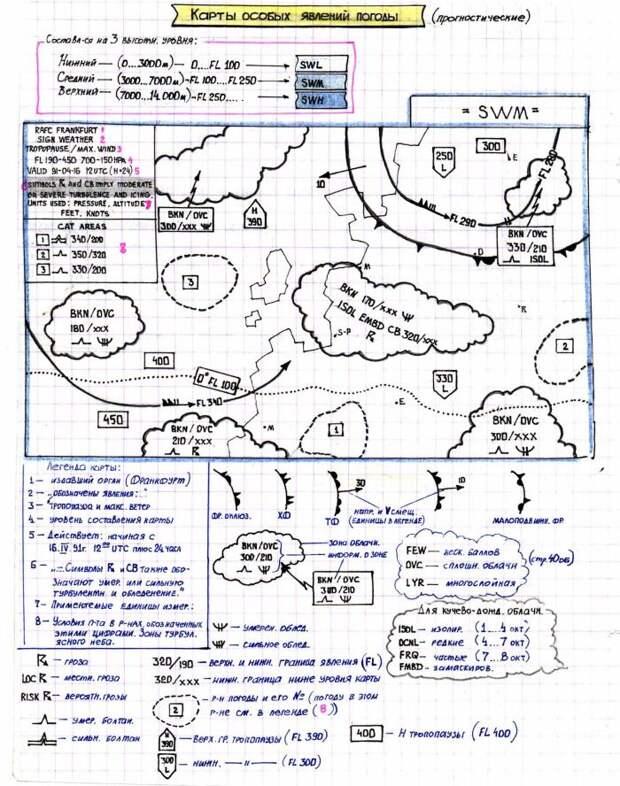 Карты особых явлений погоды (прогностические)
Состав-ся на 3 высотн. уровня:
Нижний — (0...3000м) — 0...FL 100 — SWL
Средний — (3000...7000м) — FL 100...FL 250 — SWM
Верхний — (7000...14.000м) — FL 250..... — SWH
= SWM =
RAFC FRANKFURT 1
SIGN WEATHER 2
TROPOPAUSE/MAX. WIND 3
FL 190-450 700-150HPA 4
VALID 91-04-16 12UTC (H+24) 5
SYMBOLS AND CB IMPLY MODERATE
OR SEVERE TURBULENCE AND ICING.
UNITS USED: PRESSURE, ALTITUDE,
FEET, KNOTS
CAT AREAS
1 340/200
2 350/320
3 330/200
8
BKN/OVC
300/XXX
H
390
10
250
L
300
E
FL 280
FL 290
BKN/OVC
330/210
ISOL
D
3
M
BKN 170/XXX
ISOL EMBD CB 320/XXX
S-P
R
BKN/OVC
180/XXX
400
0° FL 100
FL 340
450
330
L
2
E
M
1
BKN/OVC
210/XXX
BKN/OVC
300/XXX
Легенда карты:
1 — издавший орган (Франкфурт)
2 — „обозначены явления:..."
3 — тропопауза и макс. ветер
4 — уровень составления карты
5 — Действует: начиная с
16.IV.91г. 12⁰⁰ UTC плюс 24 часа
6 — „...Символы и СВ также обо-
значают умер. или сильную
турбулентн. и обледенение."
7 — Применяемые единицы измер.:
8 — Условия п-та в р-нах, обозначенных
этими цифрами. Зоны турбул.
ясного неба.
фр. окклюз.
ХФ
ТФ
30
напр. и V смещ.
(единицы в легенде)
10
малоподвижн. фр.
BKN/OVC
300/210
зона облачн.
информ. о зоне
BKN/OVC
300/210
FEW — неск. баллов
OVC — сплошн. облачн
LYR — многослойная
(стр. 40 об)
умерен. облед.
сильное облед.
Для кучево-дожд. облачн.
ISOL — изолир. (1...4 окт)
OCNL — редкие (4...7 окт)
FRQ — частые (7...8 окт)
EMBD — замаскиров.
— гроза
LOC — местн. гроза
RISK — вероятн. грозы
— умер. болтан.
— сильн. болтан
320/190 — верхн. и нижн. граница явления (FL)
320/XXX — нижн. граница ниже уровня карты
2 — р-н погоды и его № (погоду в этом
р-не см. в легенде (8))
H
390 — верх. гр. тропопаузы (FL 390)
400 — H тропопаузы (FL 400)
300
L — нижн. — " — (FL 300)